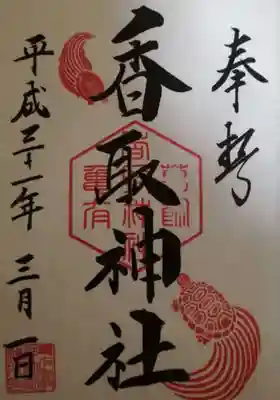 奉拝
香取神社
平成三十一年 三月一日